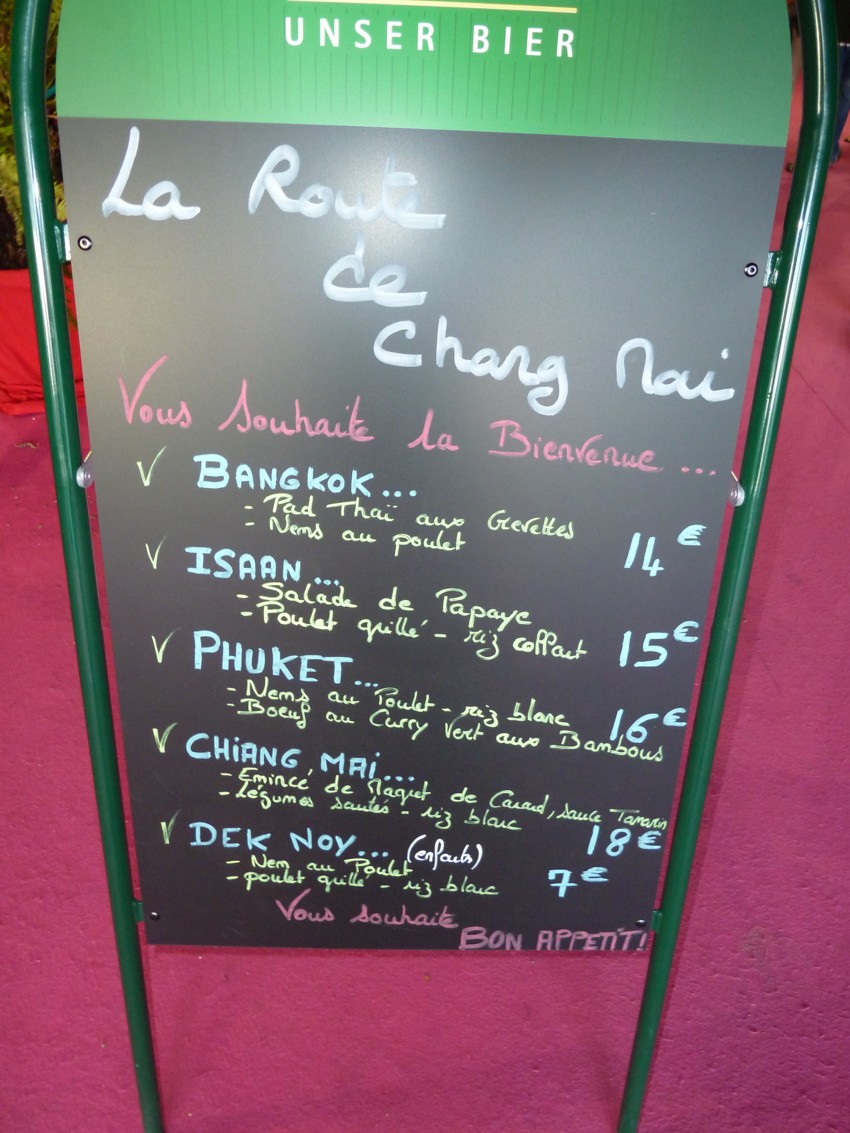 UNSER BIER
La Route
de
Chang Mai
Vous souhaite la Bienvenue ...
√ BANGKOK...
- Pad Thaï aux Crevettes
- Nems au poulet 14 €
√ ISAAN ...
- Salade de Papaye
- Poulet grillé - riz collant 15 €
√ PHUKET...
- Nems au Poulet - riz blanc 16 €
- Boeuf au Curry Vert aux Bambous
√ CHIANG MAI...
- Emincé de Magret de Canard, sauce Tamarin
- légumes sautés - riz blanc 18 €
√ DEK NOY... (enfants)
- Nem au Poulet
- poulet grillé - riz blanc 7 €
Vous souhaite
BON APPETIT!